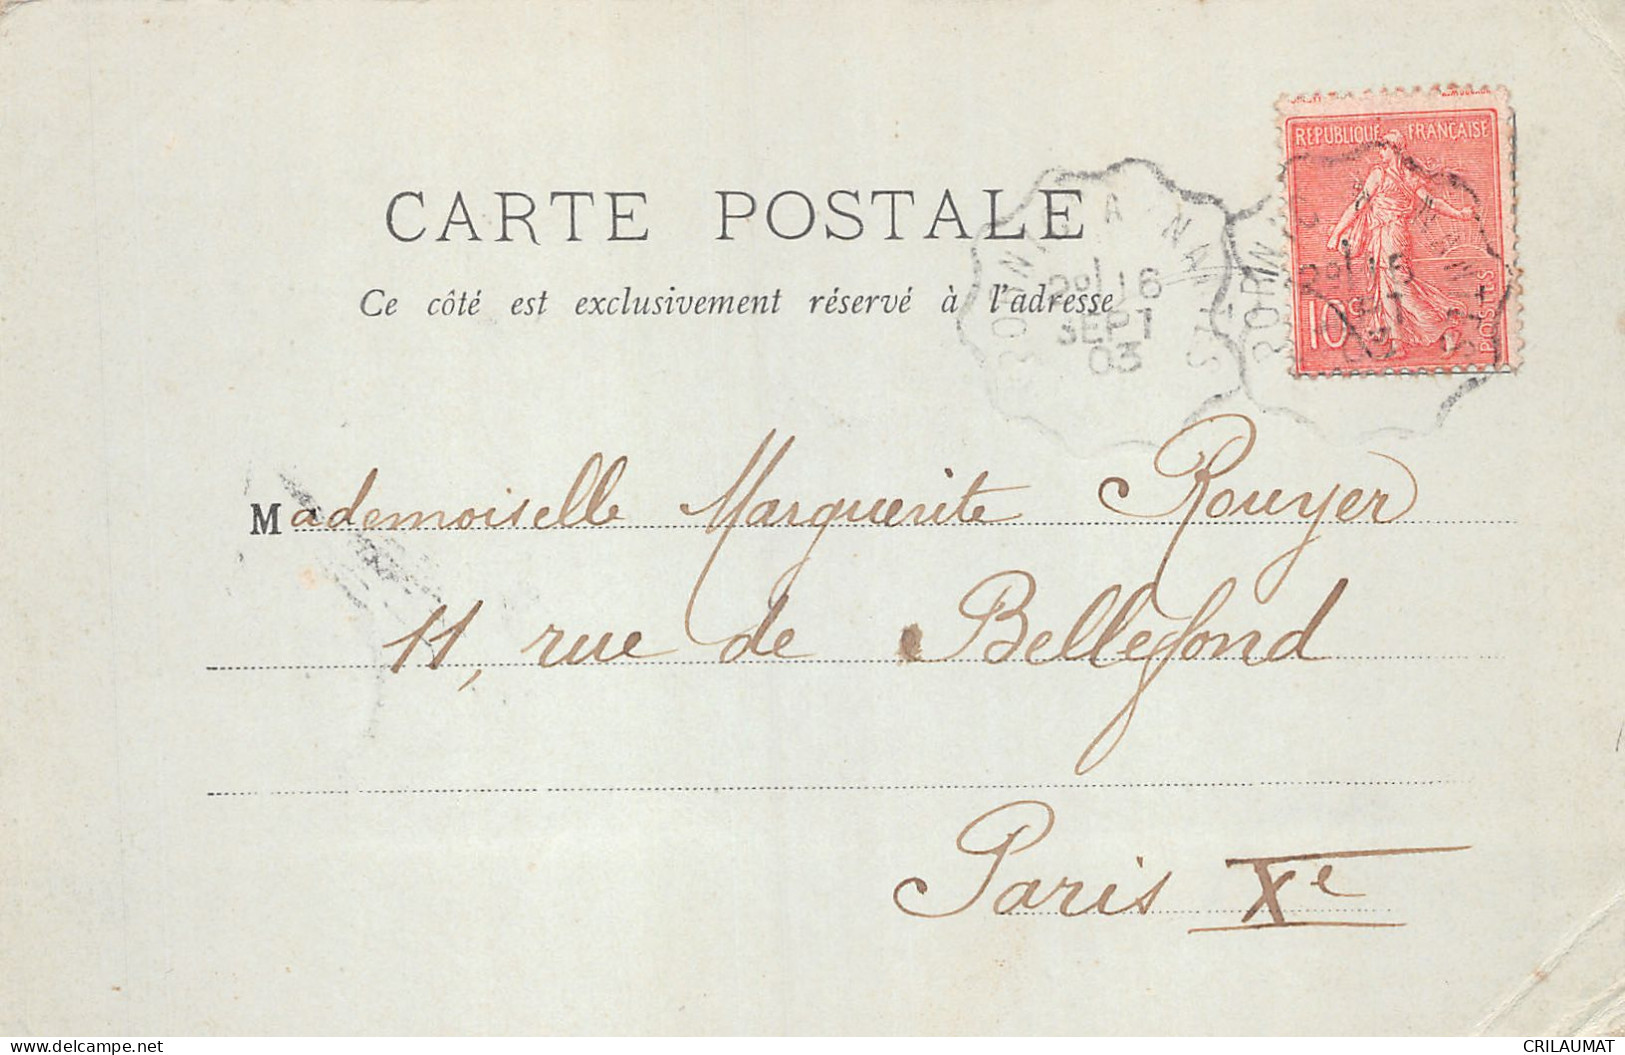 REPUBLIQUE FRANÇAISE
10c
POSTES
CARTE POSTALE
Ce côté est exclusivement réservé à l'adresse
PORNIC A NANTES
16
SEPT
03
Mademoiselle Marguerite Rouyer
11, rue de Bellefond
Paris Xe
delcampe.net
CRILAUMAT